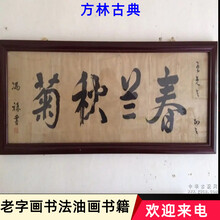 方林古典
春兰秋菊
老字画书法油画书籍
欢迎来电